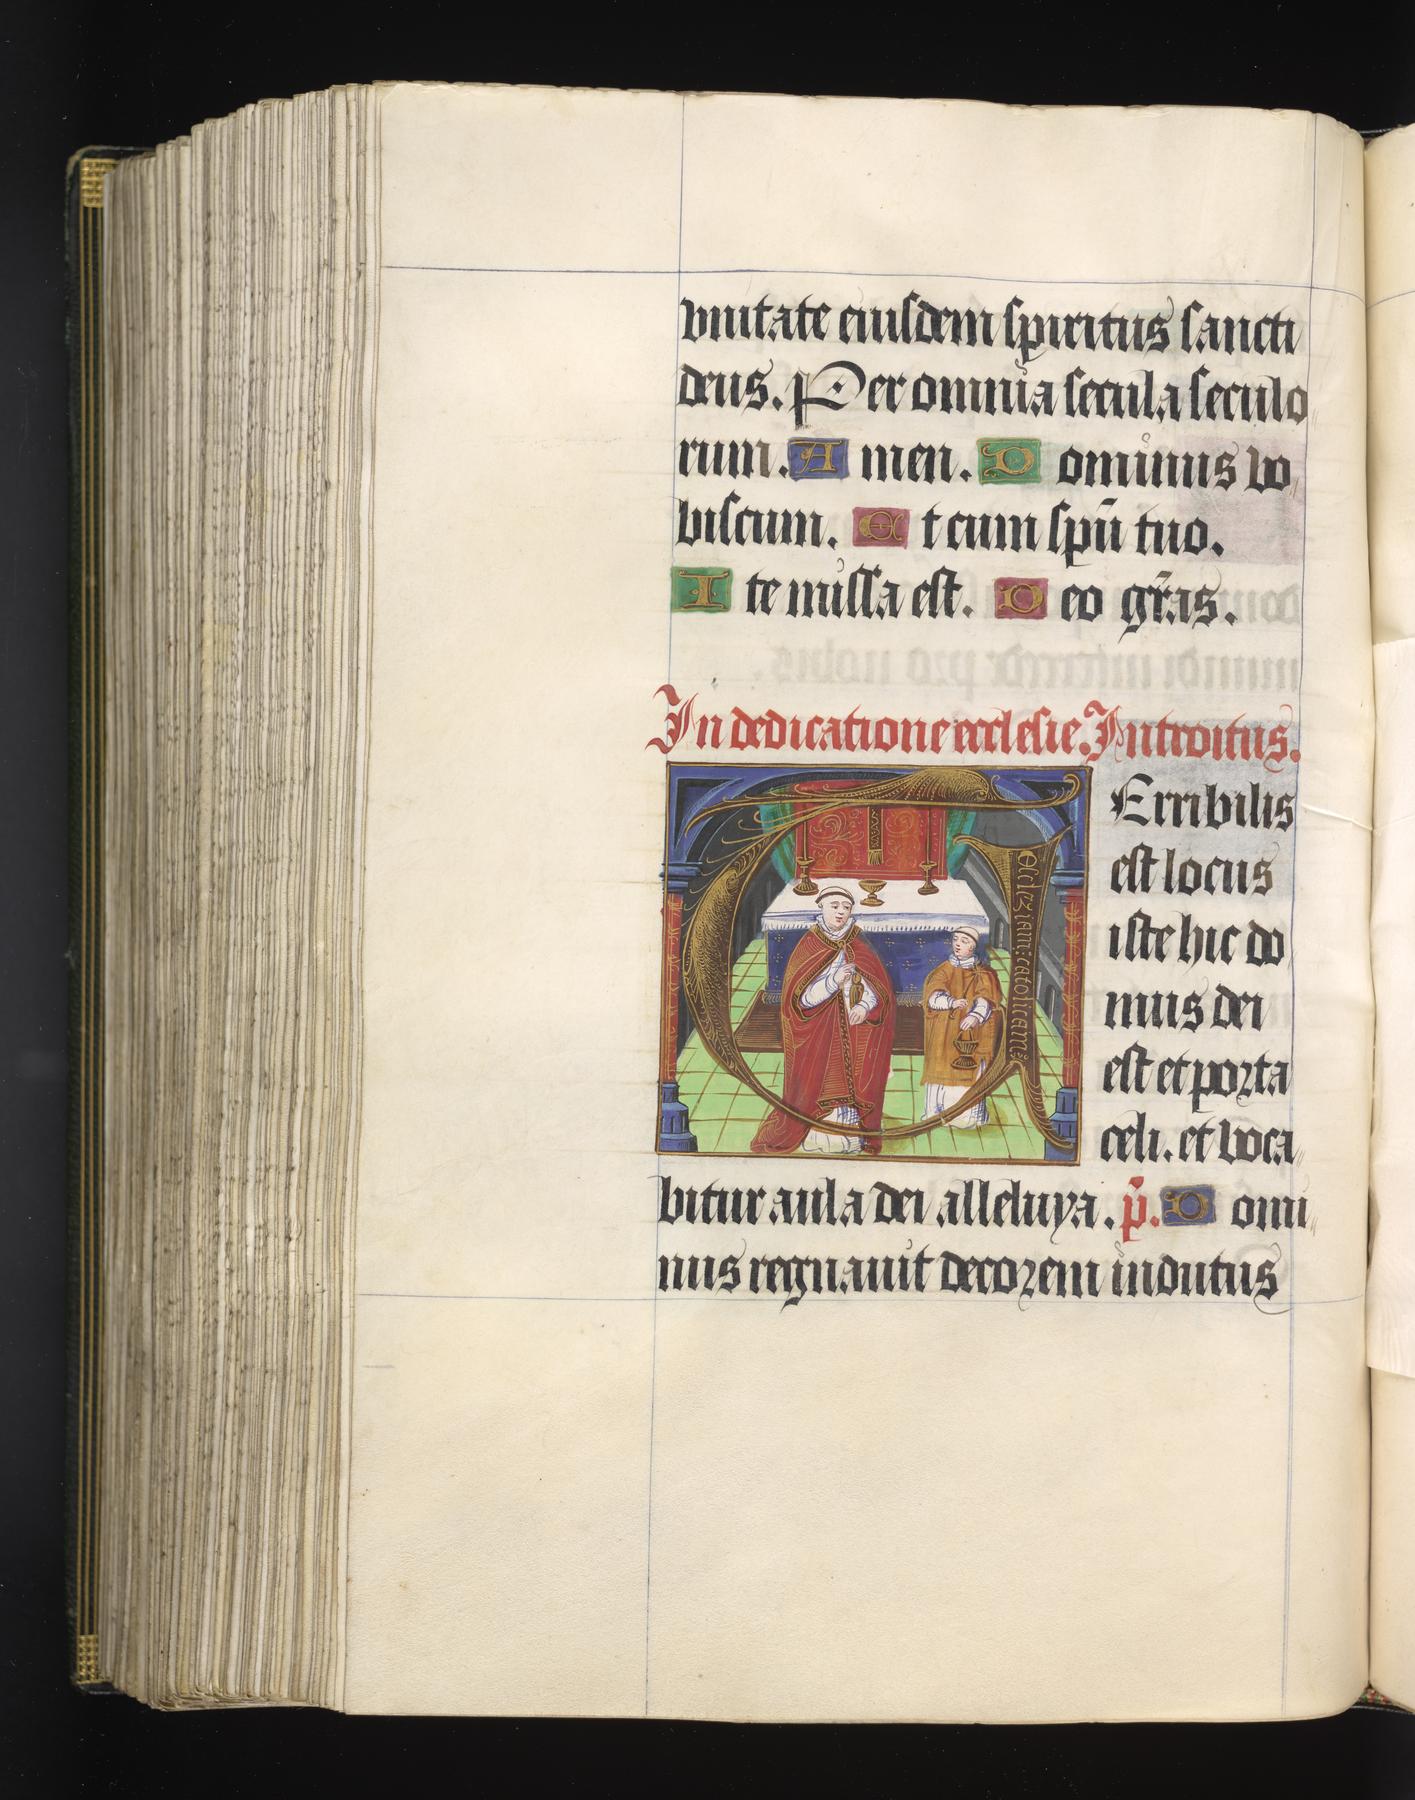 vnitate eiusdem spiritus sancti
deus. Per omnia secula seculo
rum. Amen. Dominus vo
biscum. Et cum spū tuo.
Ite missa est. Deo gr̄as.
In dedicatione ecclesie. Introitus.
Terribilis
est locus
iste hic do
mus dei
est et porta
celi. et voca
bitur aula dei alleluya. p̄. Domi
nus regnauit decorem indutus
catolicam